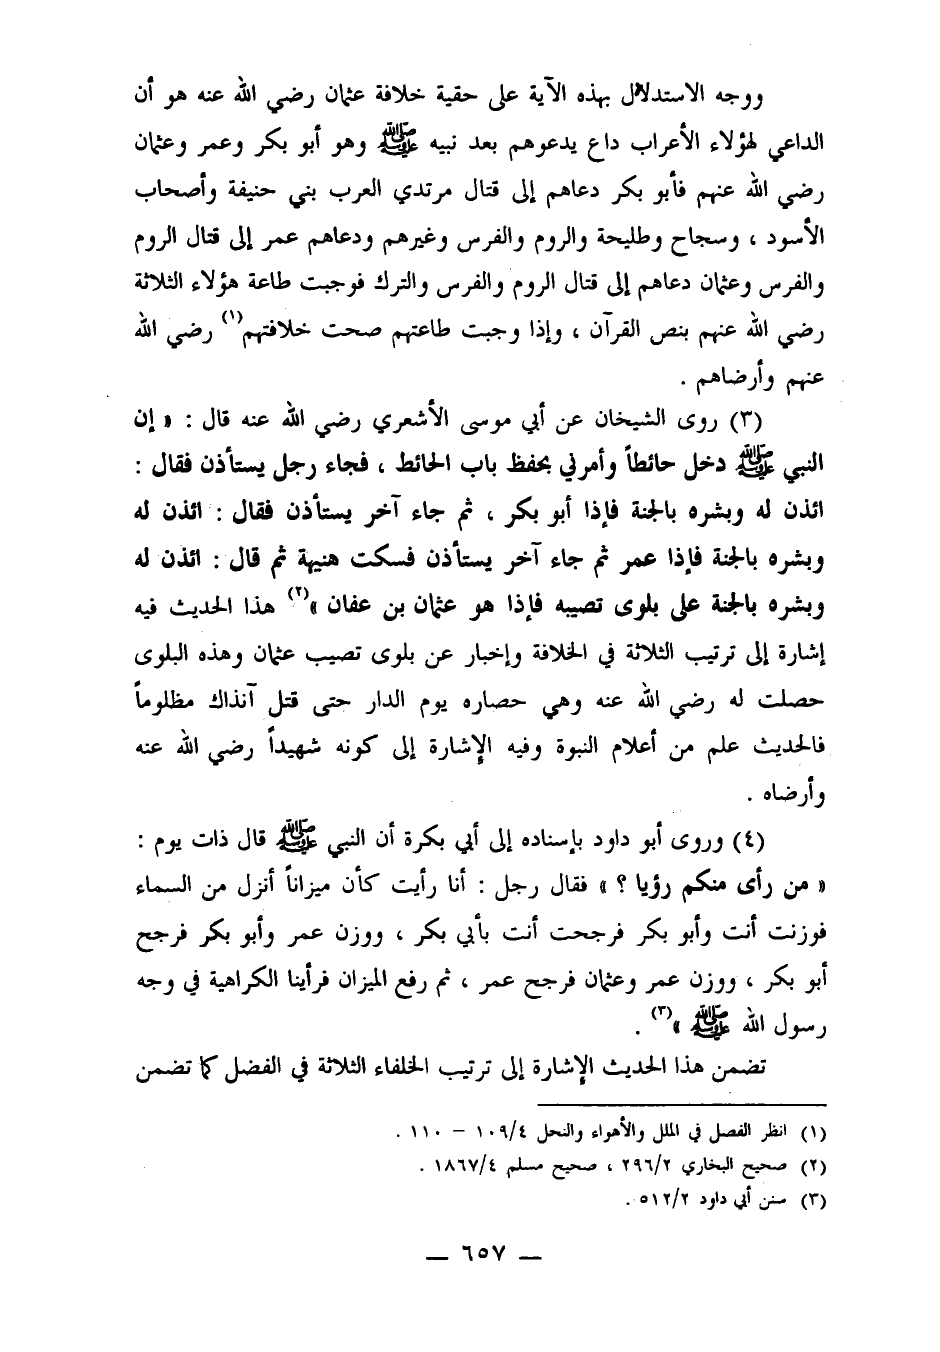 ووجه الاستدلال بهذه الآية على حقية خلافة عثمان رضي الله عنه هو أن
الداعي لهؤلاء الأعراب داع يدعوهم بعد نبيه ﷺ وهو أبو بكر وعمر وعثمان
رضي الله عنهم فأبو بكر دعاهم إلى قتال مرتدي العرب بني حنيفة وأصحاب
الأسود ، وسجاح وطليحة والروم والفرس وغيرهم ودعاهم عمر إلى قتال الروم
والفرس وعثمان دعاهم إلى قتال الروم والفرس والترك فوجبت طاعة هؤلاء الثلاثة
رضي الله عنهم بنص القرآن ، وإذا وجبت طاعتهم صحت خلافتهم(١) رضي الله
عنهم وأرضاهم .
(٣) روى الشيخان عن أبي موسى الأشعري رضي الله عنه قال : « إن
النبي ﷺ دخل حائطاً وأمرني بحفظ باب الحائط ، فجاء رجل يستأذن فقال :
ائذن له وبشره بالجنة فإذا أبو بكر ، ثم جاء آخر يستأذن فقال : ائذن له
وبشره بالجنة فإذا عمر ثم جاء آخر يستأذن فسكت هنيهة ثم قال : ائذن له
وبشره بالجنة على بلوى تصيبه فإذا هو عثمان بن عفان »(٢) هذا الحديث فيه
إشارة إلى ترتيب الثلاثة في الخلافة وإخبار عن بلوى تصيب عثمان وهذه البلوى
حصلت له رضي الله عنه وهي حصاره يوم الدار حتى قتل آنذاك مظلوماً
فالحديث علم من أعلام النبوة وفيه الإشارة إلى كونه شهيداً رضي الله عنه
وأرضاه .
(٤) وروى أبو داود بإسناده إلى أبي بكرة أن النبي ﷺ قال ذات يوم :
« من رأى منكم رؤيا ؟ » فقال رجل : أنا رأيت كأن ميزاناً أنزل من السماء
فوزنت أنت وأبو بكر فرجحت أنت بأبي بكر ، ووزن عمر وأبو بكر فرجح
أبو بكر ، ووزن عمر وعثمان فرجح عمر ، ثم رفع الميزان فرأينا الكراهية في وجه
رسول الله ﷺ »(٣) .
تضمن هذا الحديث الإشارة إلى ترتيب الخلفاء الثلاثة في الفضل كما تضمن
(١) انظر الفصل في الملل والأهواء والنحل ١٠٩/٤ – ١١٠ .
(٢) صحيح البخاري ٢٩٦/٢ ، صحيح مسلم ١٨٦٧/٤ .
(٣) سنن أبي داود ٥١٢/٢ .
— ٦٥٧ —